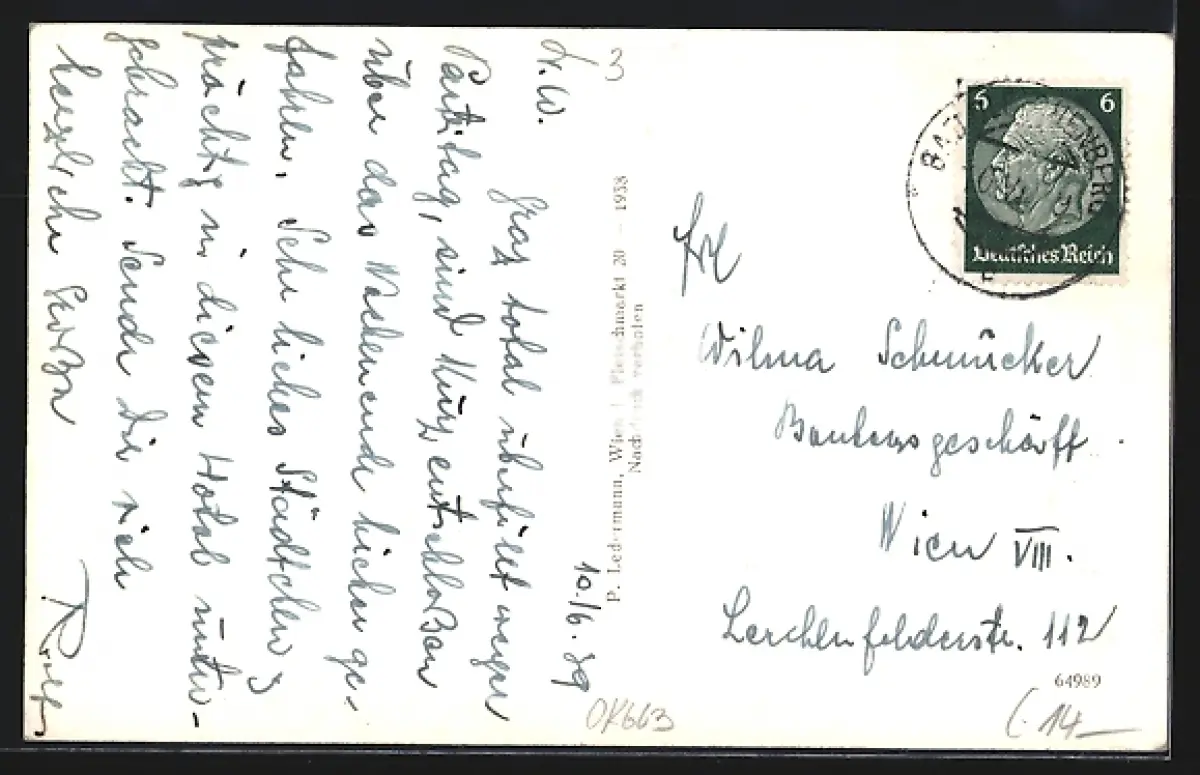 3
10./6. 39
L. W.
Graz total überfüllt wegen
Parteitag, sind kurz entschloßen
über das Wochenende hieher ge-
fahren. Sehr liebes Städtchen,
prächtig in diesem Hotel unter-
gebracht. Sende Dir viele
herzliche Grüße
Rolf
P. Ledermann, Wien I, Fleischmarkt 20 – 1938
Nachdruck verboten
5 6
Deutsches Reich
BAD
ENBERG
Frl
Wilma Schmücker
Bankensgeschäft
Wien VIII.
Lerchenfelderstr. 112
64989
OK663
14